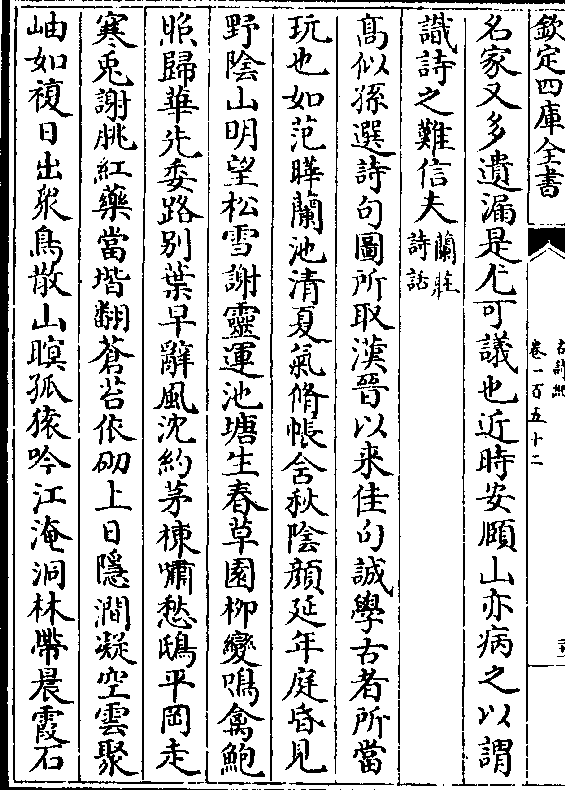 欽定四庫全書
古詩紀
卷一百五十二
名家又多遺漏是尤可議也近時安頤山亦病之以謂
識詩之難信夫蘭莊詩話
髙似孫選詩句圖所取漢晉以来佳句誠學古者所當
玩也如范曄蘭池清夏氣脩帳含秋陰顔延年庭昏見
野陰山明望松雪謝靈運池塘生春草園柳變鳴禽鮑
照歸華先委路别葉早辭風沈約茅棟嘯愁鴟平岡走
寒兎謝朓紅藥當堦翻蒼苔依砌上日隠澗凝空雲聚
岫如複日出衆鳥散山暝孤猿吟江淹洞林帶晨霞石